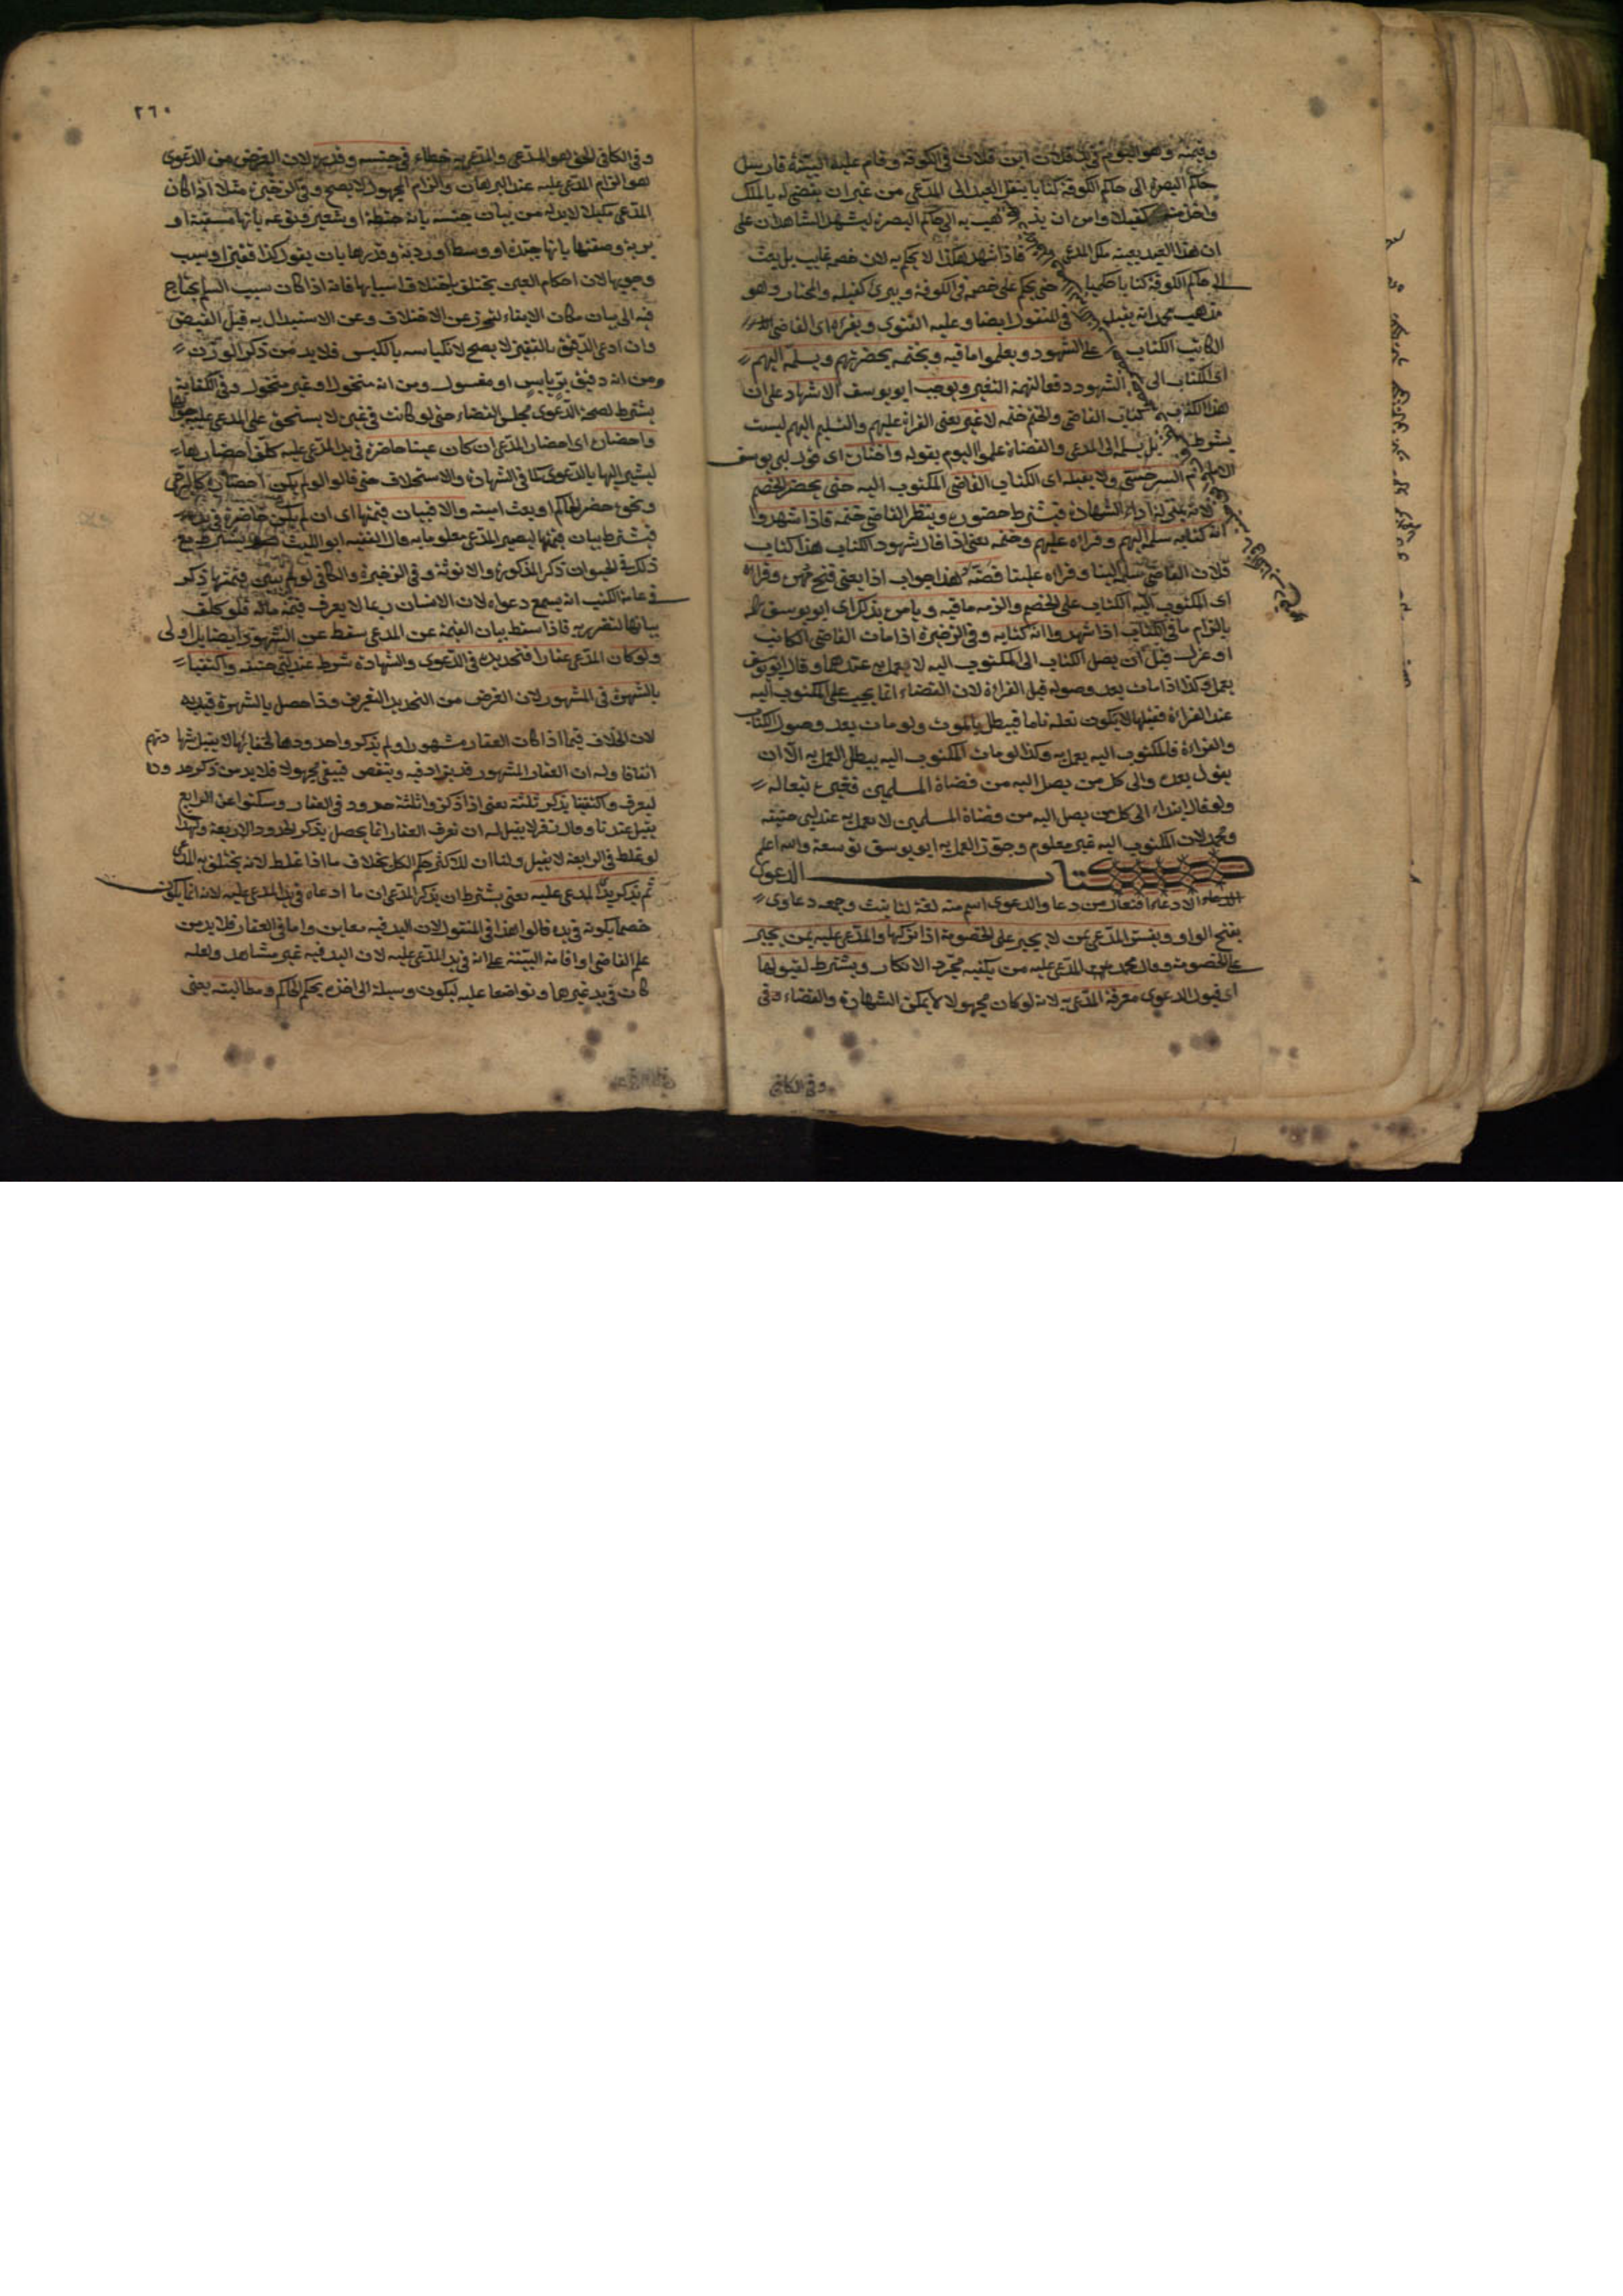 وقيمته وهو اليوم في يد فلان ابن فلان في الكوفة وقام عليه البينة فارسل
حاكم البصرة الى حاكم الكوفة كتابا ينقل العبد الى المدعي من غير ان يقضي له بالملك
واخذ منه كفيلا وامر ان يذهب به الى حاكم البصرة ليشهد الشاهدان على
ان هذا العبد بعينه ملك المدعي فاذا شهد هكذا لا يحكم به لان خصمه غايب بل يبعث
الى حاكم الكوفة كتابا حكميا حتى يحكم على خصمه في الكوفة ويبرئ كفيله والمختار وهو
مذهب محمد انه يقبل في المنقول ايضا وعليه الفتوى ويقراه اى القاضي
الكاتب الكتاب على الشهود ويعلموا ما فيه ويختمه بحضرتهم ويسلمه اليهم
اى الكتاب الى الشهود دفعا لتهمة التغيير ويوجب ابو يوسف الاشهاد على ان
هذا الكتاب كتاب القاضي والختم ختمه لا غير يعنى القراة عليهم والتسليم اليهم ليست
بشرط بل يسلم الى المدعي والقضاة علموا اليوم بقوله واختاره اى قول ابي يوسف
الامام السرخسي ولا يقبله اى الكتاب القاضي المكتوب اليه حتى يحضر الخصم
لانه بمنزلة اداء الشهادة فيشترط حضوره وينظر القاضي ختمه فاذا شهدوا
انه كتابه سلمه اليهم وقراه عليهم وختمه يعنى اذا قال شهود الكتاب هذا كتاب
فلان القاضي سلمه الينا وقراه علينا فضه هذا جواب اذا يعنى فتح وقراه
اى المكتوب اليه الكتاب على الخصم والزمه ما فيه ويامر بذكر اى ابو يوسف
بالزام ما في الكتاب اذا شهدوا انه كتابه وفي الذخيرة اذا مات القاضي الكاتب
او عزل قبل ان يصل الكتاب الى المكتوب اليه لا يعمل به عندهما وقال ابو يوسف
يعمل وكذا اذا مات بعد وصوله قبل القراة لان القضاء انما يجب على المكتوب اليه
عند القراة فقبلها لا يكون نقله تاما فيبطل بالموت ولو مات بعد وصول الكتاب
والقراءة فللمكتوب اليه يعمل به وكذا لو مات المكتوب اليه يبطل العمل به الا ان
يقول بعده والى كل من يصل اليه من قضاة المسلمين فغيره تبعا له
ولو قال ابتداء الى كل من يصل اليه من قضاة المسلمين لا يعمل به عند ابي حنيفة
ومحمد لان المكتوب اليه غير معلوم وجوز العمل به ابو يوسف توسعة والله اعلم
كتاب الدعوى
الادعاء افتعال من دعا والدعوى اسم منه لغة لنا بنت وجمعه دعاوى
بفتح الواو ويفسر المدعي بمن لا يجبر على الخصومة اذا تركها والمدعى عليه بمن يجبر
على الخصومة وقال محمد المدعى عليه من يكفيه مجرد الانكار ويشترط لقبولها
اى قبول الدعوى معرفة المدعى به لانه لو كان مجهولا لا يمكن الشهادة والقضاء وفي
وفي الكافي
٢٦٠
وفي الكافي الحق هو المدعى والمدعى به خطاء في جنسه وقدره لان الغرض من الدعوى
هو الزام المدعى عليه عند البرهان والزام المجهول لا يصح وفي الذخيرة مثلا اذا كان
المدعى مكيلا لا بد له من بيان جنسه بانه حنطة او شعير ونوعه بانها سقية او
برية وصفتها بانها جيدة او وسط او ردية وقدرها بان يقول كذا قفيزا وسبب
وجوبها لان احكام العين يختلف باختلاف اسبابها فانه اذا كان سبب السلم يحتاج
فيه الى بيان مكان الايفاء لتحوز عن الاختلاف وعن الاستبدال به قبل القبض
وان ادعى الدقيق بالقفيز لا يصح لانكياسه بالكبس فلا بد من ذكر الوزن
ومن انه دقيق بر يابس او مغسول ومن انه منخول او غير منخول وفي الكفاية
يشترط لصحة الدعوى مجلس القضاء حتى لو كانت في غيره لا يستحق على المدعى عليه جوابها
واحضاره اى احضار المدعى ان كان عينا حاضرة في يد المدعى عليه كلف احضارها
ليشير اليها بالدعوى كما في الشهادة والاستحلاف حتى قالوا لو لم يكن احضاره كالرحى
ونحوه حضر الحاكم او بعث امينه والا فبيان قيمتها اى ان لم يكن حاضرة في يده
فيشترط بيان قيمتها ليصير المدعى معلوما به وقال الفقيه ابو الليث يشترط مع
ذلك في الحيوان ذكر الذكورة والانوثة وفي الذخيرة والكافي لو لم يبين قيمتها ذكر
في عامة الكتب انه يسمع دعواه لان الانسان ربما لا يعرف قيمة ماله فلو كلف
بيانها لتضرر به فاذا سقط بيان القيمة عن المدعي سقط عن الشهود ايضا بل اولى
ولو كان المدعى عقارا فتحديده في الدعوى والشهادة شرط عند ابي حنيفة واكتفيا
بالشهرة في المشهور لان الغرض من التحديد التعريف وذا حصل بالشهرة قيد به
لان الخلاف فيما اذا كان العقار مشهورا ولم يذكر واحدودها لخفائها لا يقبل شهادتهم
اتفاقا وله ان العقار المشهور قد يزاد فيه وينقص فيبقى مجهولا فلا بد من ذكر حدوده
ليعرف واكتفينا بذكر ثلثة يعنى اذا ذكروا ثلثة حدود في العقار وسكتوا عن الرابع
يقبل عندنا وقال زفر لا يقبل له ان تعرف العقار انما يحصل بذكر الحدود الاربعة ولهذا
لو غلط في الرابعة لا يقبل ولنا ان للاكثر حكم الكل بخلاف ما اذا غلط لانه يختلف به المدعى
ثم نذكر يد المدعى عليه يعنى يشترط ان يذكر المدعي ان ما ادعاه في يد المدعى عليه لانه انما يكون
خصما بكونه في يده قالوا هذا في المنقول لان اليد فيه معاين واما في العقار فلا بد من
علم القاضي او اقامة البينة على انه في يد المدعى عليه لان اليد فيه غير مشاهد ولعله
كان في يد غيرهما وتواضعا عليه ليكون وسيلة الى اخذه بحكم الحاكم ومطالبته يعنى